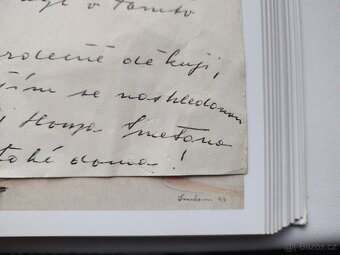 v tomto
srdečně děkuji,
ším se nashledanou
i Honza Smetana
také doma!
Smetana 43
© Bazoš.cz